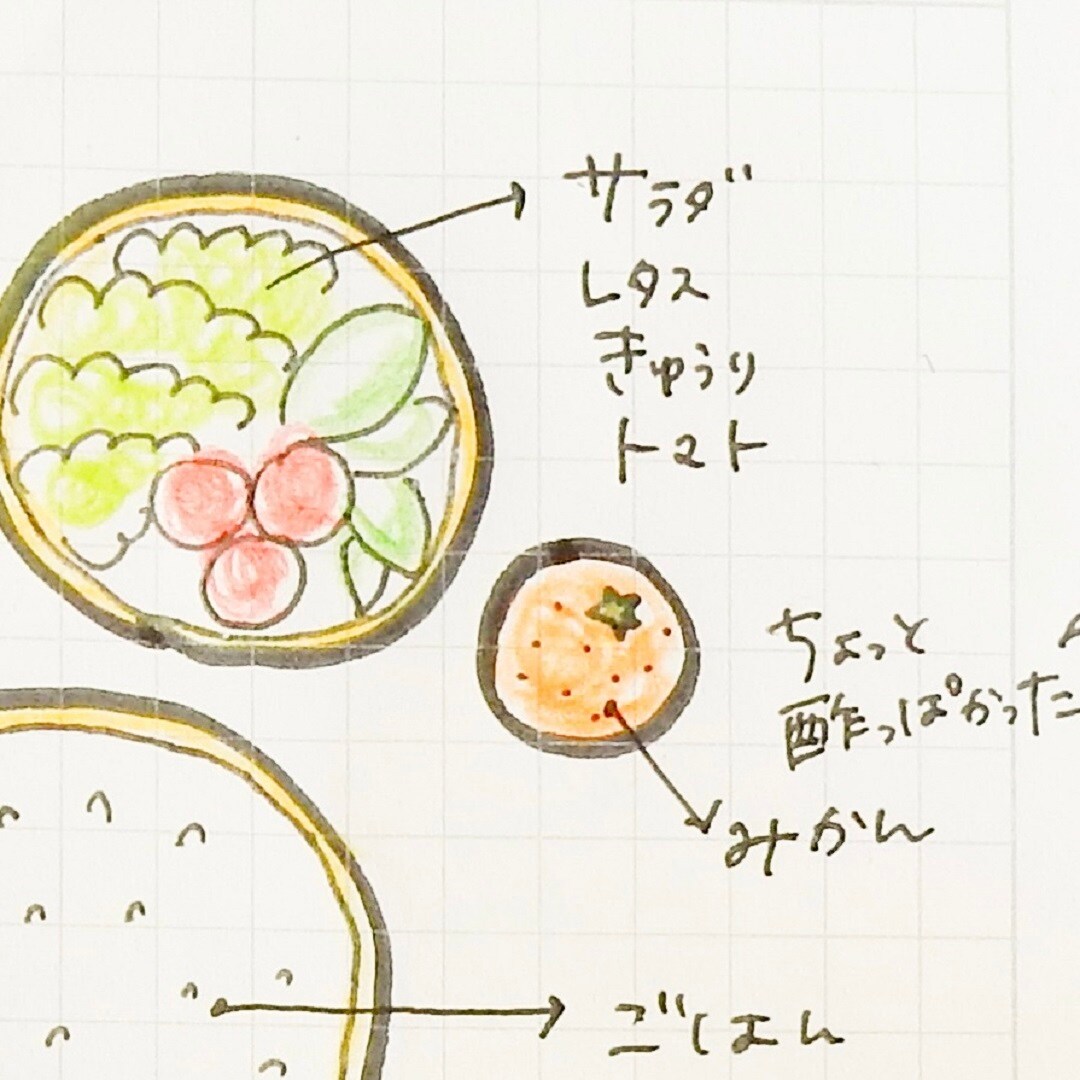 サラダ
レタス
きゅうり
トマト
ちょっと
酢っぱかった
みかん
ごはん